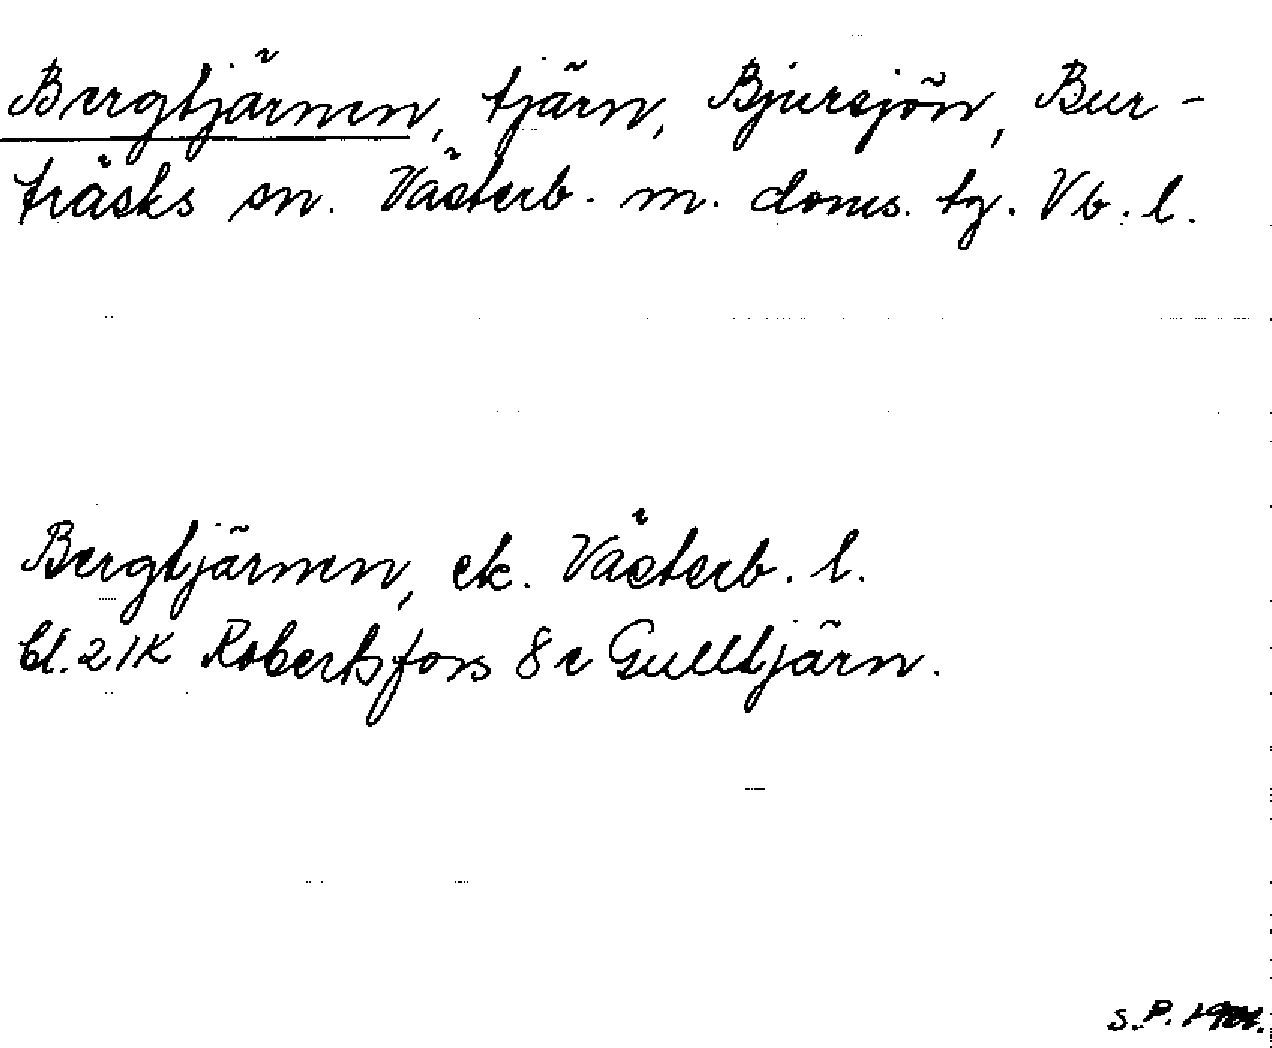 Bergtjärnen, tjärn, Bjursjön, Bur-
träsks sn. Västerb. m. doms. tg. Vb. l.
Bergtjärnen, ek. Västerb. l.
bl. 21K Robertsfors 8e Gulltjärn.
S.P.